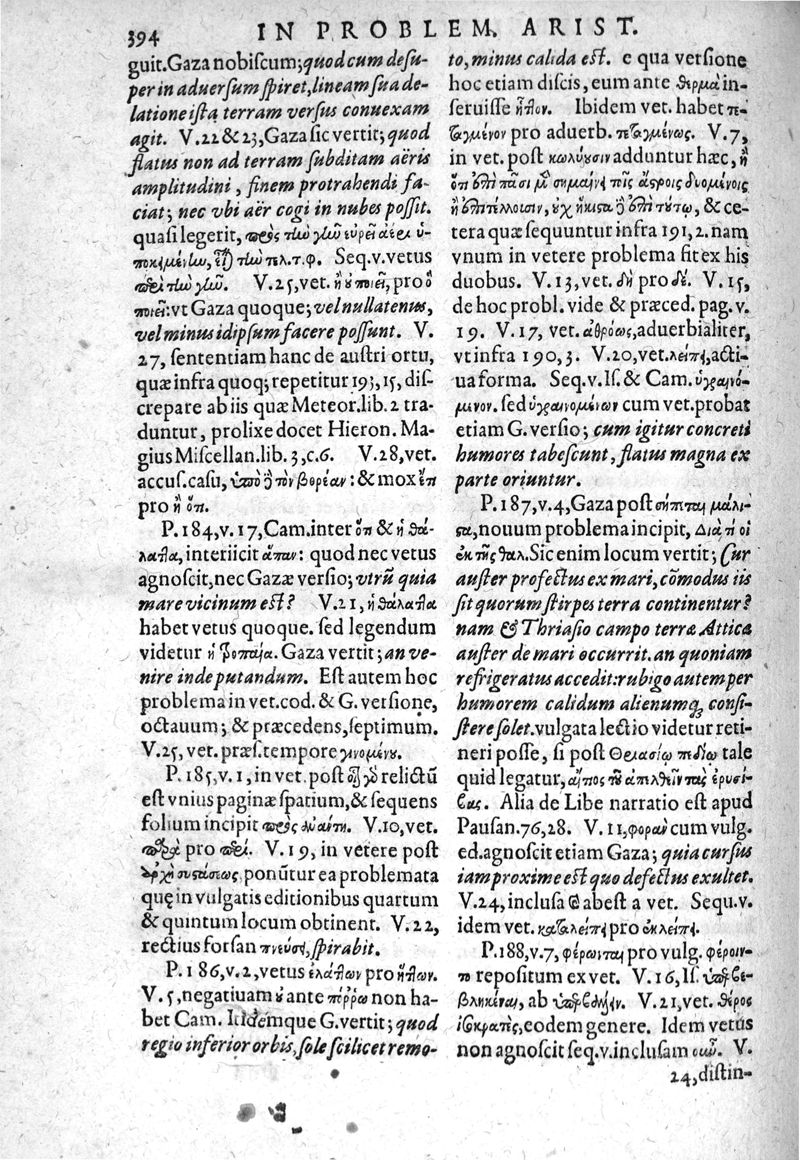 394
IN PROBLEM. ARIST.
guit. Gaza nobiscum; quod cum desu-
per in aduersum spiret, lineam sua de-
latione ista terram versus conuexam
agit. V. 22 & 23, Gaza sic vertit; quod
flatus non ad terram subditam aëris
amplitudini, finem protrahendi fa-
ciat; nec vbi aër cogi in nubes possit.
quasi legerit, πρὸς τὴν γῆν εὑρεῖ ἀέρι ὑ-
ποκειμένην, τὴν τελ. τ. φ. Seq. v. vetus
περὶ τὴν γῆν. V. 25, vet. ἢ οὐ ποιεῖ, pro ὃ
ποιεῖ: vt Gaza quoque; vel nullatenus,
vel minus id ipsum facere possunt. V.
27, sententiam hanc de austri ortu,
quæ infra quoq; repetitur 193, 15, dis-
crepare ab iis quæ Meteor. lib. 2 tra-
duntur, prolixe docet Hieron. Ma-
gius Miscellan. lib. 3, c. 6. V. 28, vet.
accus. casu, ὑπὸ τὸν βορέαν: & mox ἔτι
pro ἢ ὅτι.
P. 184, v. 17, Cam. inter ὅτι & ἡ θά-
λαττα, interiicit ἅπαν: quod nec vetus
agnoscit, nec Gazæ versio; vtrũ quia
mare vicinum est? V. 21, ἡ θάλαττα
habet vetus quoque. sed legendum
videtur ἡ τροπαία. Gaza vertit; an ve-
nire inde putandum. Est autem hoc
problema in vet. cod. & G. versione,
octauum; & præcedens, septimum.
V. 25, vet. præs. tempore γινομένου.
P. 185, v. 1, in vet. post relictũ
est vnius paginæ spatium, & sequens
folium incipit πρὸς V. 10, vet.
παρὰ pro περί. V. 19, in vetere post
ἀρχὴ συστάσεως, ponũtur ea problemata
quę in vulgatis editionibus quartum
& quintum locum obtinent. V. 22,
rectius forsan πνεύσει, spirabit.
P. 186, v. 2, vetus ἐλάττων pro ἥττων.
V. 5, negatiuam οὐ ante πόρρω non ha-
bet Cam. Itidemque G. vertit; quod
regio inferior orbis, sole scilicet remo-
to, minus calida est. e qua versione
hoc etiam discis, eum ante θερμὰ in-
seruisse ἧττον. Ibidem vet. habet τε-
ταγμένον pro aduerb. τεταγμένως. V. 7,
in vet. post κωλύουσιν adduntur hæc, ἢ
ὅτι ἐπὶ πᾶσι μὲν σημαίνει τοῖς ἄστροις δυομένοις
ἢ ἐπιτέλλουσιν, οὐχ ἥκιστα δὲ ἐπὶ τούτῳ, & ce-
tera quæ sequuntur infra 191, 2. nam
vnum in vetere problema fit ex his
duobus. V. 13, vet. δὴ pro δέ. V. 15,
de hoc probl. vide & præced. pag. v.
19. V. 17, vet. ἀθρόως, aduerbialiter,
vt infra 190, 3. V. 20, vet. λείπει, acti-
ua forma. Seq. v. Is. & Cam. ὑγραινό-
μενον. sed ὑγραινομένων cum vet. probat
etiam G. versio; cum igitur concreti
humores tabescunt, flatus magna ex
parte oriuntur.
P. 187, v. 4, Gaza post σήπεται μάλι-
στα, nouum problema incipit, Διὰ τί οἱ
ἐκ τῆς θαλ. Sic enim locum vertit; Cur
auster profectus ex mari, cõmodus iis
sit quorum stirpes terra continentur?
nam & Thriasio campo terræ Atticæ
auster de mari occurrit. an quoniam
refrigeratus accedit: rubigo autem per
humorem calidum alienumq; consi-
stere solet. vulgata lectio videtur reti-
neri posse, si post Θριασίῳ πεδίῳ tale
quid legatur, αἴτιος τοῦ ἀπελθεῖν τὰς ἐρυσί-
βας. Alia de Libe narratio est apud
Pausan. 76, 28. V. 11, φορὰν cum vulg.
ed. agnoscit etiam Gaza; quia cursus
iam proxime est quo defectus exultet.
V. 24, inclusa abest a vet. Sequ. v.
idem vet. καταλείπει pro ἐκλείπει.
P. 188, v. 7, φέρωνται pro vulg. φέροιν-
το repositum ex vet. V. 16, Is. ὑπερβε-
βληκέναι, ab ὑπερβάλλειν. V. 21, vet. θέρος
ἰσοκρατὲς, eodem genere. Idem vetus
non agnoscit seq. v. inclusam οὖν. V.
24, distin-